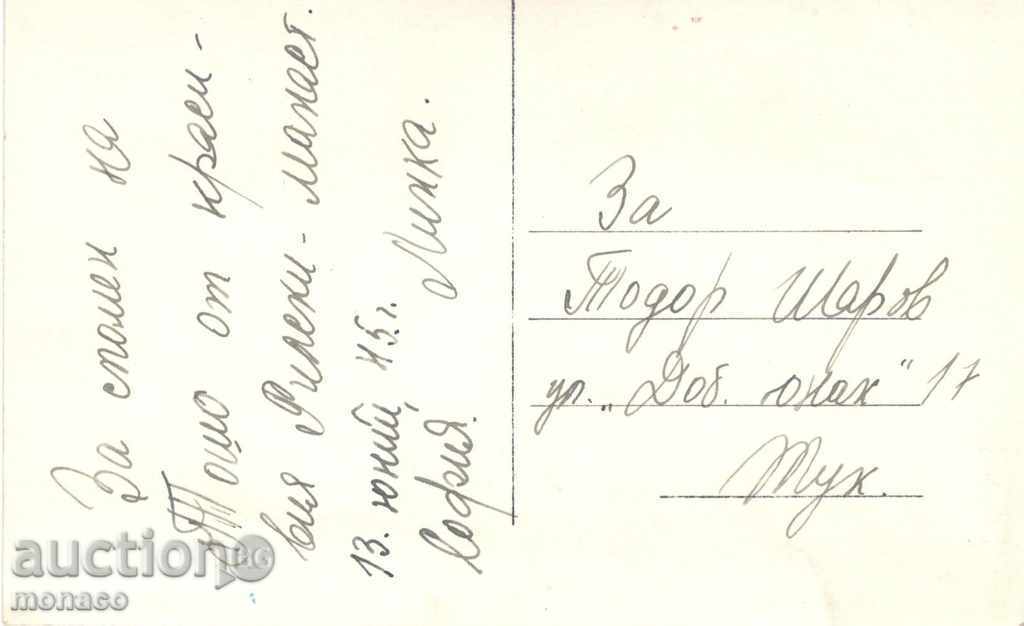 За спомен на
Тошо от краси-
вия Рилски-манаст.
13. юний, 45 г. Линка.
София.
За
Тодор Шаров
ул. „Доб. юнак" 17
Тук.
auction BG
monaco